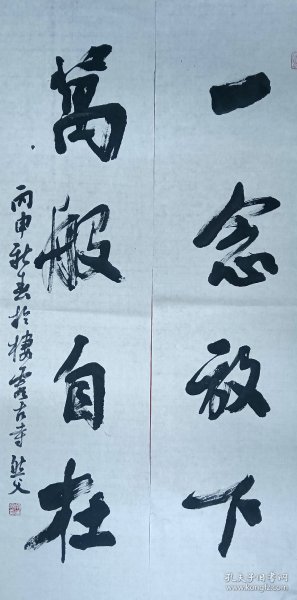 一念放下
萬般自在
丙申新春於棲霞古寺
孔夫子旧书网